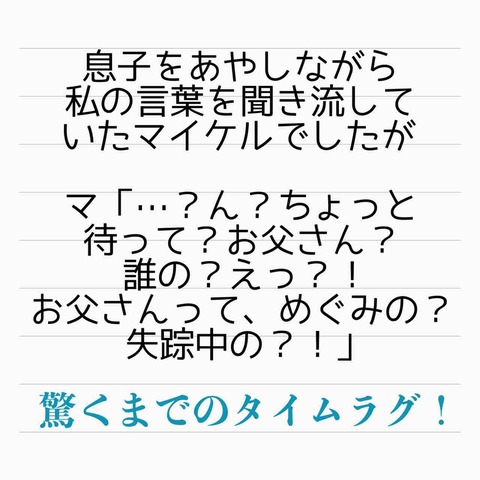 息子をあやしながら
私の言葉を聞き流して
いたマイケルでしたが
マ「…？ん？ちょっと
待って？お父さん？
誰の？えっ？！
お父さんって、めぐみの？
失踪中の？！」
驚くまでのタイムラグ！